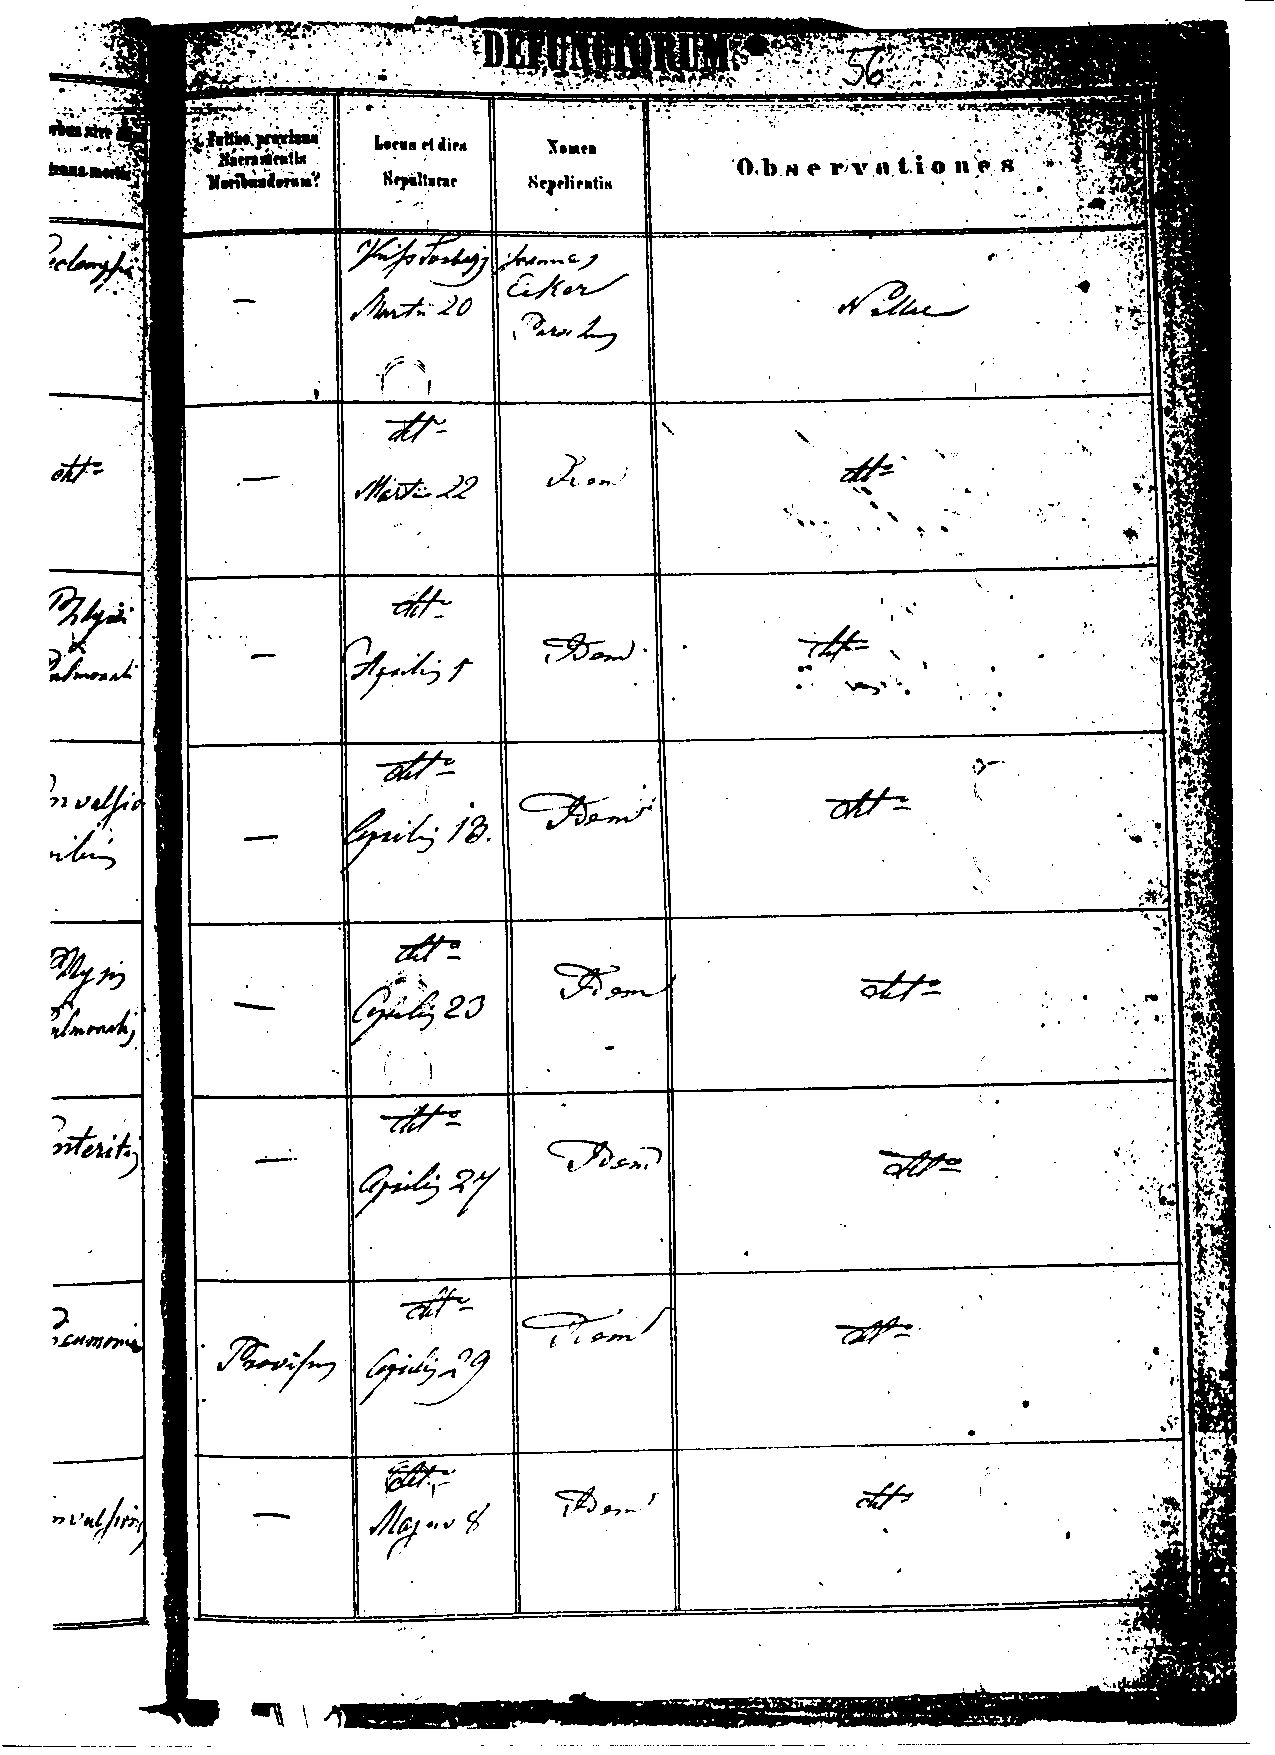 DEFUNCTORUM.
56
Fuitne provisus
Sacramentis
Moribundorum?
Locus et dies
Sepulturae
Nomen
Sepelientis
Observationes
—
Martii 20
Joannes
Eiker
Parochus
Nullae
dtto
dtto
—
Martii 22
Idem
dtto
Pulmonalis
—
dtto
Aprilis
Idem
dtto
—
dtto
Aprilis 13.
Idem
dtto
Pulmonalis
—
dtto
Aprilis 23
Idem
dtto
nteritis
—
dtto
Aprilis 27
Idem
dtto
neumonia
Provisus
dtto
Aprilis 29
Idem
dtto
—
dtto
8
Idem
dtto